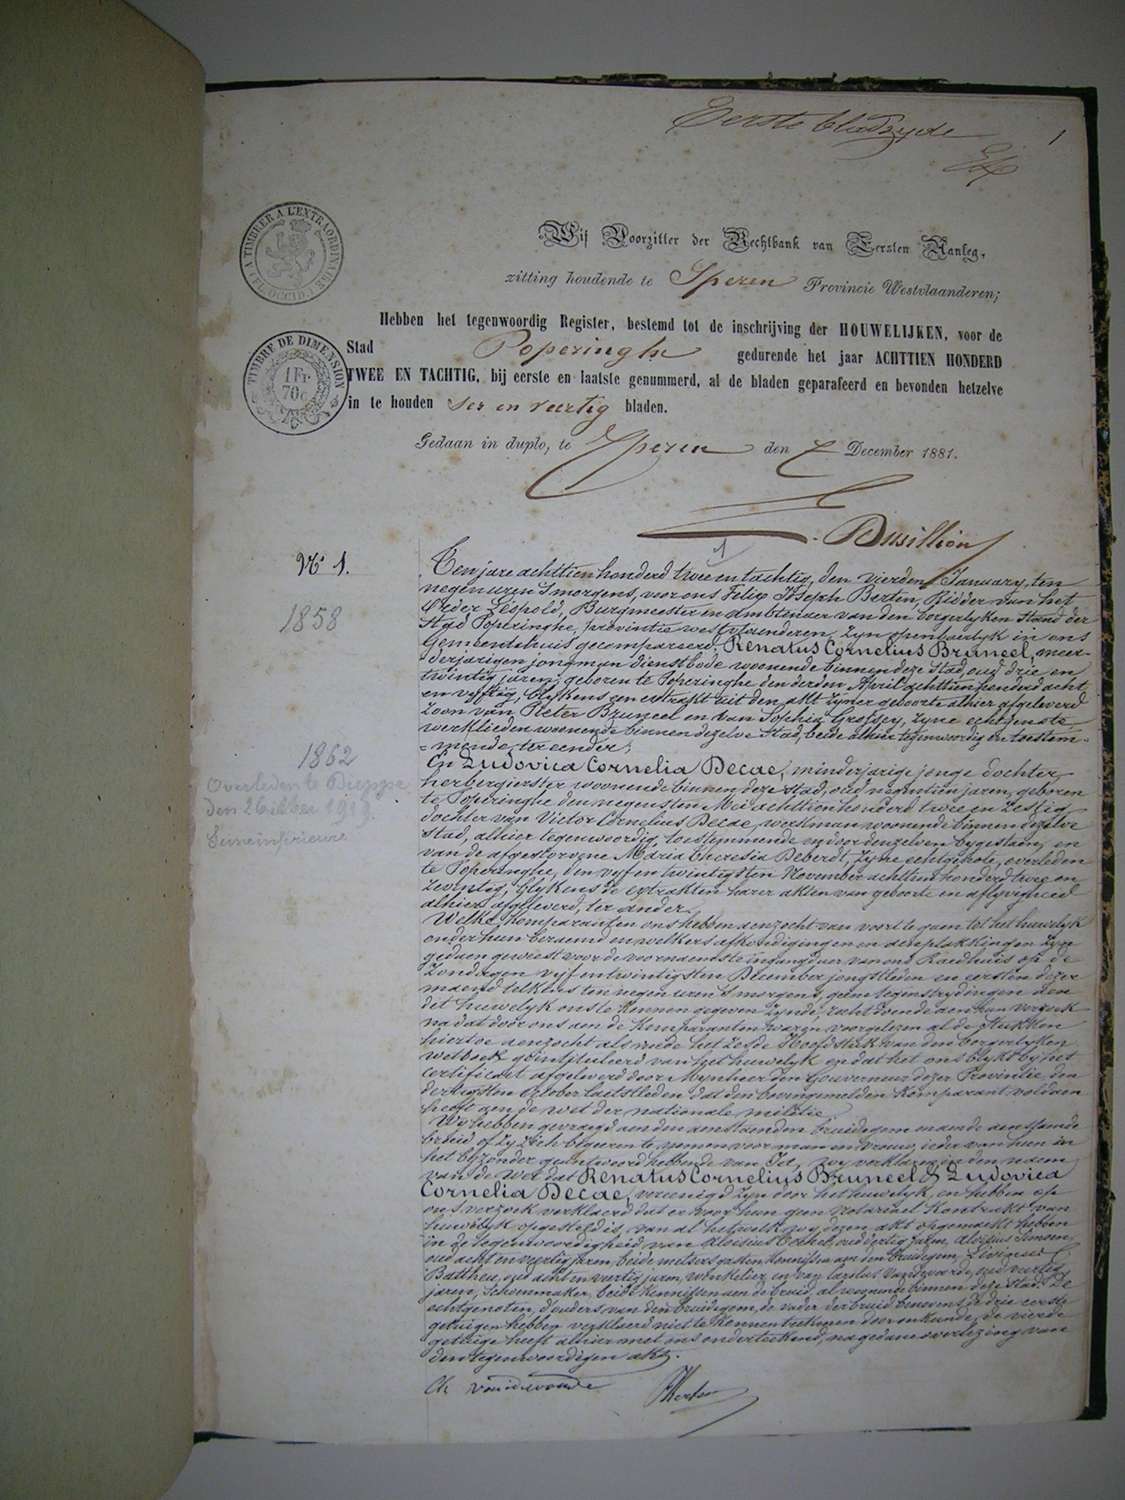 Eerste bladzyde
1
A TIMBRER A L'EXTRAORDINAIRE
FL: OCCID:
Wij Voorzitter der Rechtbank van Eersten Aanleg,
zitting houdende te Yperen Provincie Westvlaanderen;
Hebben het tegenwoordig Register, bestemd tot de inschrijving der HOUWELIJKEN, voor de
Stad Poperinghe gedurende het jaar ACHTTIEN HONDERD
TWEE EN TACHTIG, bij eerste en laatste genummerd, al de bladen geparafeerd en bevonden hetzelve
in te houden ses en veertig bladen.
TIMBRE DE DIMENSION
1 Fr
70 c
Gedaan in duplo, te Yperen den 7 December 1881.
N° 1.
Ten jare achttien honderd twee en tachtig, den vierden January, ten
negen uren s'morgens, voor ons Felix Joseph Berten, Ridder van het
Order Léopold, Burgmeester en ambtenaer van den borgerlyken stand der
Stad Poperinghe, provintie westvlaenderen, zyn openbaerlyk in ons
Gemeentehuis gecompareerd, Renatus Cornelius Bruneel, meer-
derjarigen jongman dienstbode woonende binnen deze stad, oud drie en
twintig jaren, geboren te Poperinghe den derden April achttien honderd acht
en vyftig, blykens een extrakt uit den akt zyner geboorte alhier afgeleverd
Zoon van Pieter Bruneel en van Sophia Grossey, zyne echtgenote
werklieden woonende binnen dezelve Stad, beide alhier tegenwoordig en toestem-
mende, ter eender;
1858
1862
Overleden te Dieppe
den 26 1919.
Seineinférieure
En Ludovica Cornelia Decae, minderjarige jonge dochter,
herbergierster woonende binnen deze stad, oud negentien jaren, geboren
te Poperinghe den negensten Mei achttien honderd twee en zestig
dochter van Victor Cornelius Decae, werkman woonende binnen dezelve
stad, alhier tegenwoordig, toestemmende en door denzelven bygestaen, en
van de afgestorvene Maria Theresia Deberdt, zyne echtgenote, overleden
te Poperinghe, den vyf en twintigsten November achttien honderd twee en
zeventig, blykens de extrakten harer akten van geboorte en aflyvigheid
alhier afgeleverd, ter ander.
Welke komparanten ons hebben aenzocht van voort te gaen tot het huwelyk
onder hun beraemd en welkers afkondigingen en aenplakkingen zyn
gedaen geweest voor de voornaemste ingangdeur van ons Raedhuis op de
Zondagen vyf en twintigsten December jongstleden en eersten dezer
maend telkens ten negen uren s'morgens, geen tegenstrydingen aen
dit huwelyk ons te kennen gegeven zynde, recht doende aen hun verzoek
na dat door ons aen de komparanten waren voorgelezen al de stukken
hiertoe aenzocht als mede het zesde Hoofdstuk van den borgerlyken
wetboek geintituleerd van het huwelyk en dat het ons blykt by het
certificaet afgeleverd door Mynheer den Gouverneur dezer Provintie den
dertigsten october laetstleden dat den bovengemelden komparant voldaen
heeft aen de wet der nationale militie.
Wy hebben gevraegd aen den aenstaenden bruidegom en aende aenstaende
bruid of zy zich begeeren te nemen voor man en vrouw, ieder van hun in
het bezonder geantwoord hebbende van Ja, wy verklaren in den naem
van de wet dat Renatus Cornelius Bruneel & Ludovica
Cornelia Decae, vereenigd zyn door het huwelyk, en hebben op
ons verzoek verklaerd dat er voor hun geen notariael kontrakt van
huwelyk opgesteld is, van al hetwelk wy dezen akt opgemaekt hebben
in de tegenwoordigheid van Aloisius oud dertig jaren, Aloisius Simoen,
oud acht en veertig jaren, beide metsersgasten kennissen aen den bruidegom, Livinus C.
Battheu, oud acht en veertig jaren, winkelier en van Carolus Vandevoorde, oud veertig
jaren, schoenmaker, beide kennissen aen de bruid, al woonende binnen deze stad. De
echtgenoten, d'ouders van den bruidegom, de vader der bruid benevens de drie eerste
getuigen hebben verklaerd niet te konnen teekenen door onkunde, de vierde
getuige heeft alhier met ons onderteekend, na gedane overlezing van
den tegenwoordigen akt.
Ch vandevoorde